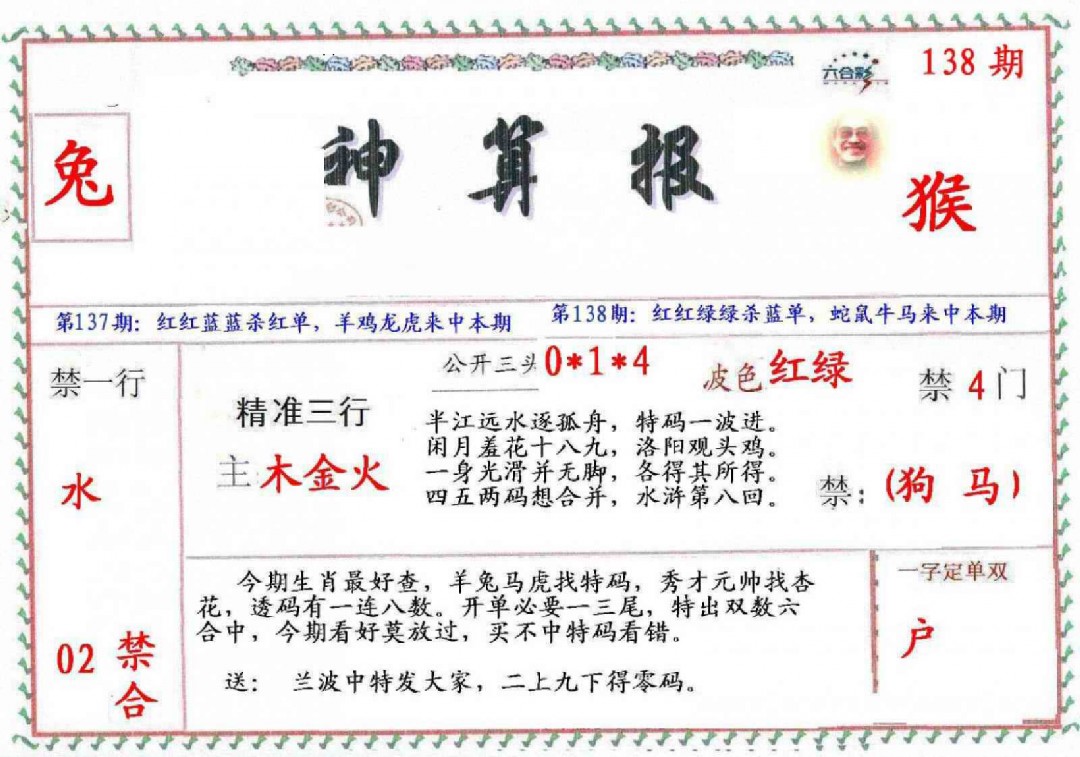 六合彩
138 期
兔
神算报
猴
第137期：红红蓝蓝杀红单，羊鸡龙虎来中本期
第138期：红红绿绿杀蓝单，蛇鼠牛马来中本期
禁一行
水
02 禁合
精准三行
主 木金火
公开三头 0*1*4
波色 红绿
半江远水逐孤舟，特码一波进。
闲月羞花十八九，洛阳观头鸡。
一身光滑并无脚，各得其所得。
四五两码想合并，水浒第八回。
禁 4 门
禁：（狗 马）
今期生肖最好查，羊兔马虎找特码，秀才元帅找杏
花，透码有一连八数。开单必要一三尾，特出双数六
合中，今期看好莫放过，买不中特码看错。
送： 兰波中特发大家，二上九下得零码。
一字定单双
户